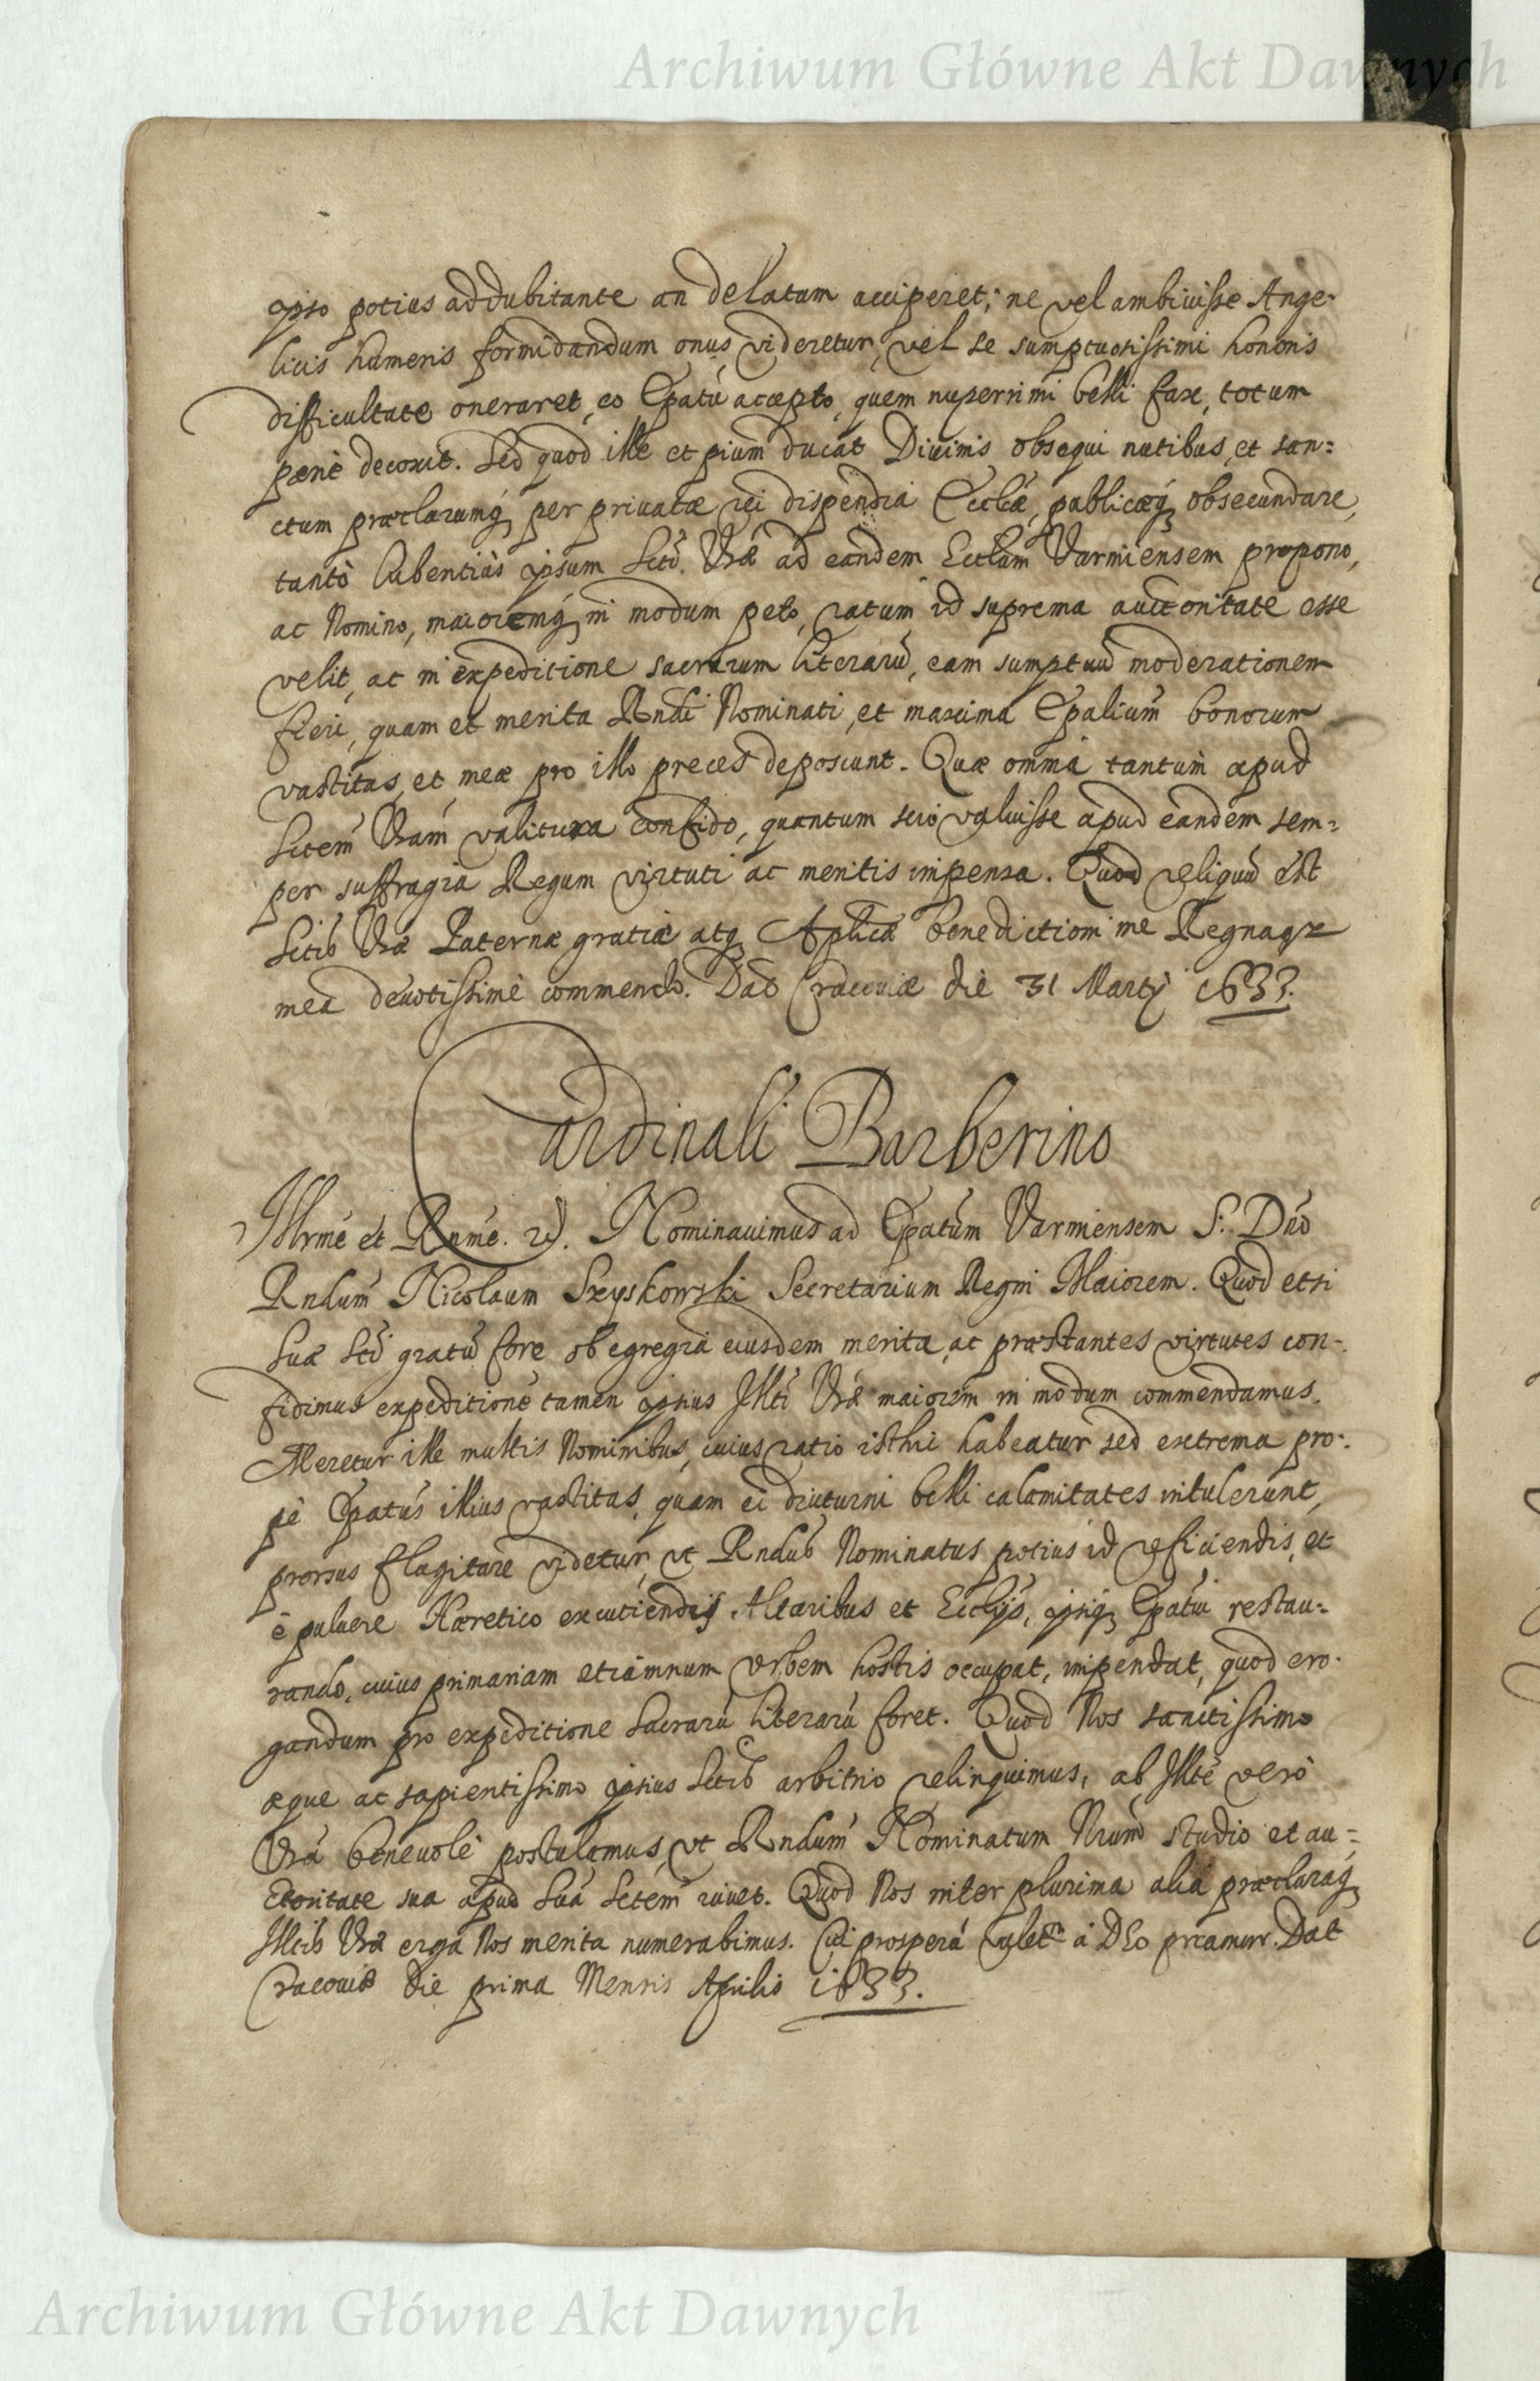 Archiwum Główne Akt Dawnych
ipso potius addubitante an delatam acciperet; ne vel ambiuisse Ange-
licis humeris formidandum onus videretur, vel se sumptuosissimi honoris
difficultate oneraret, eo Epatũ accepto, quem nuperrimi belli fax, totum
pænè decoxit. Sed quod ille et pium ducat Diuinis obsequi nutibus, et san=
ctum præclarumq, per priuatæ rei dispendia Eccliæ, publicæq, obsecundare,
tantò lubentiùs ipsum Sctĩ. Vræ ad eandem Ecclam Varmiensem propono,
ac Nomino, maioremq, in modum peto, ratum id suprema auctoritate esse
velit, ac in expeditione sacrarum literarũ, eam sumptuũ moderationem
fieri, quam et merita Rndi Nominati, et maxima Epalium bonorum
vastitas, et meæ pro illo preces deposcunt. Quæ omnia tantum apud
Sctem Vram valitura confido, quantum scio valuisse apud eandem sem=
per suffragia Regum virtuti ac meritis impensa. Quod reliquũ est
Sctis Vræ Paternæ gratiæ atq, Aplicæ benedictioni me Regnaq,
mea deuotissimè commendo. Dat Cracouiæ die 31 Martij 1633.
Cardinali Barberino
Illrme et Rnme. D. Nominauimus ad Epatum Varmiensem S. Dno
Rndum Nicolaum Szyskowski Secretarium Regni Maiorem. Quod etsi
Suæ Sctĩ gratũ fore ob egregia eiusdem merita, ac præstantes virtutes con-
fidimus expeditionẽ tamen ipsius Illti Vræ maiorem in modum commendamus.
Meretur ille multis Nominibus, cuius ratio isthic habeatur sed extrema pro-
pè Epatus illius vastitas, quam ei diuturni belli calamitates intulerunt,
prorsus flagitare videtur, ut Rndus Nominatus potius id reficiendis, et
è puluere Hæretico excutiendis Altaribus et Ecclijs, ipsiq, Epatui restau=
rando, cuius primariam etiamnum Vrbem hostis occupat, impendat, quod ero-
gandum pro expeditione Sacrarũ literarũ foret. Quod Nos sanctissimo
æque ac sapientissimo ipsius Sctis arbitrio relinquimus, ab Illte verò
Vra beneuolè postulamus, ut Rndum Nominatum Nrum studio et au=
ctoritate sua apud Suã Sctem iuuet. Quod Nos inter plurima alia præclaraq,
Illtis Vræ erga Nos merita numerabimus. Cui prosperã valetm à DEo præcamur. Dat
Cracouiæ die prima Mensis Aprilis 1633.
Archiwum Główne Akt Dawnych